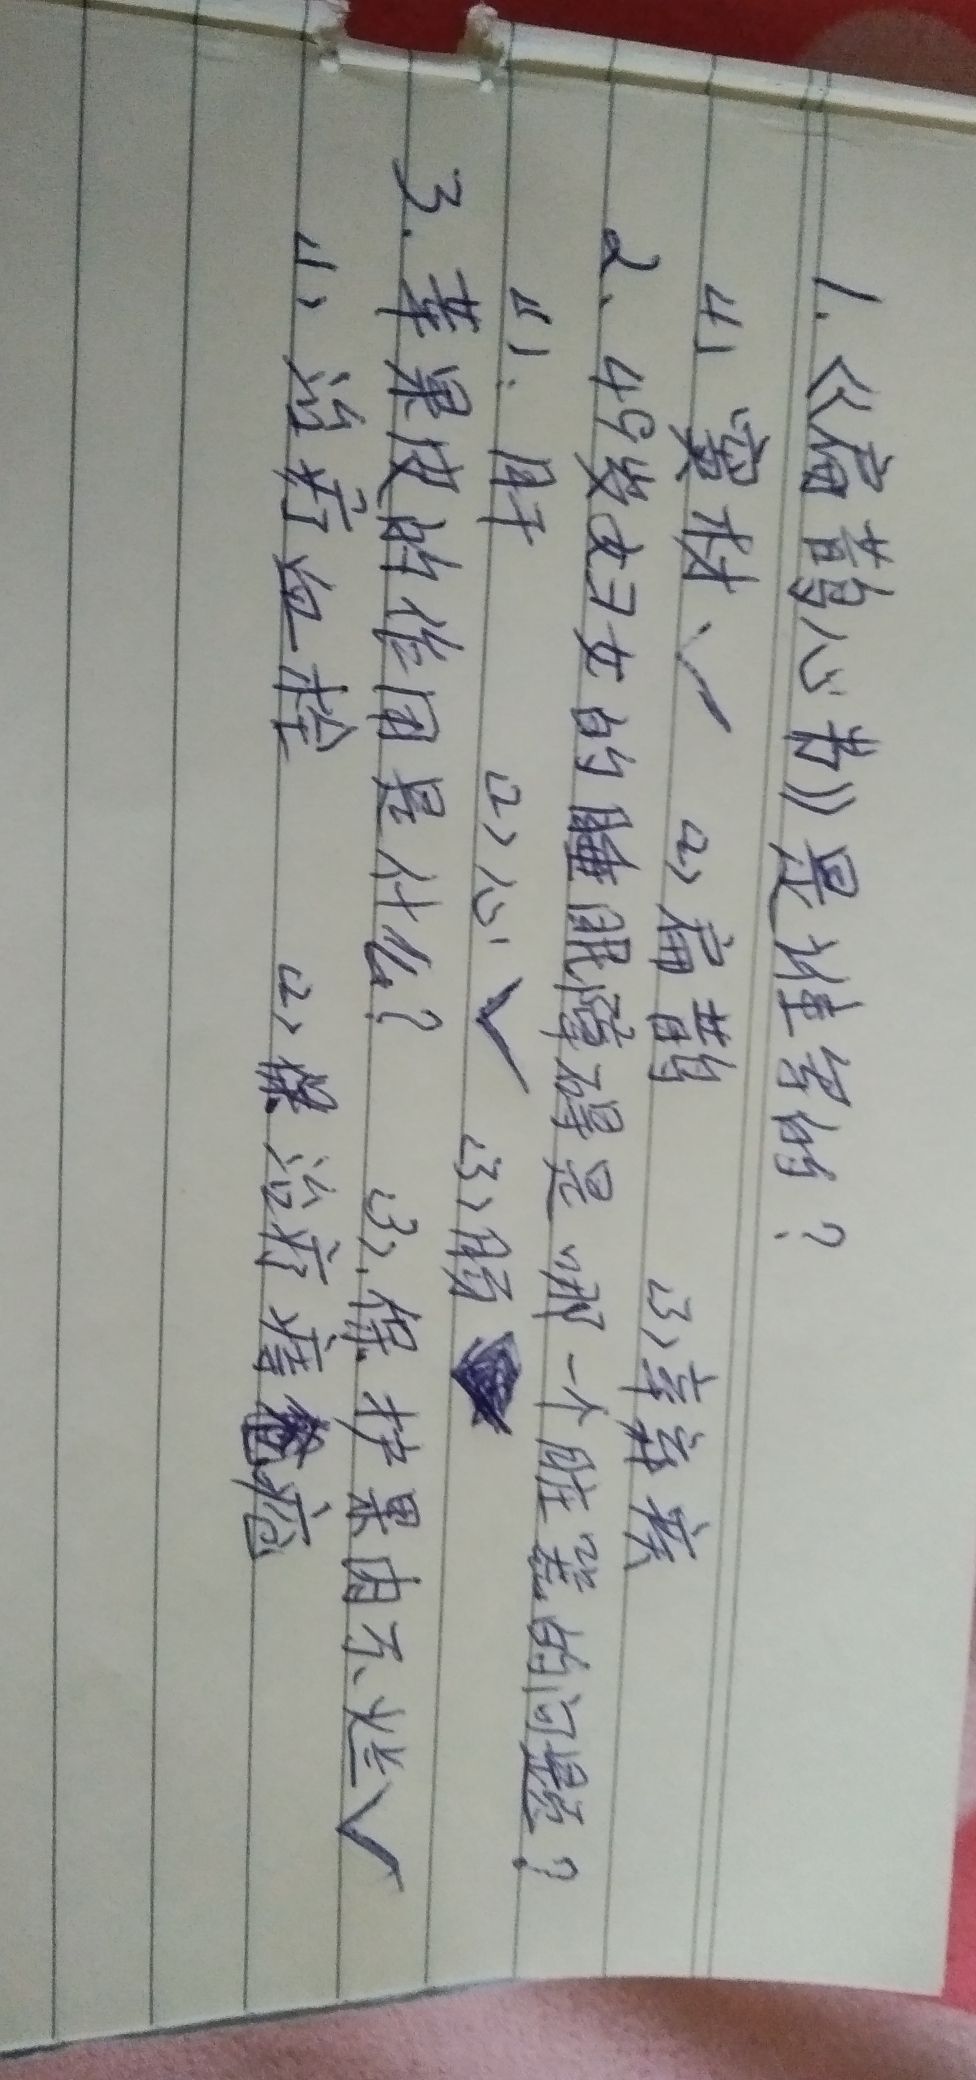 1.《扁鹊心书》是谁写的?
(1) 窦材 ✓ (2) 扁鹊 (3) 辛弃疾
2、49岁妇女的睡眠障碍是哪一个脏器的问题?
(1). 肝 (2) 心 ✓ (3) 肠
3.苹果皮的作用是什么? (3).保护果肉不烂 ✓
(1) 治疗血栓 (2) 治疗疮